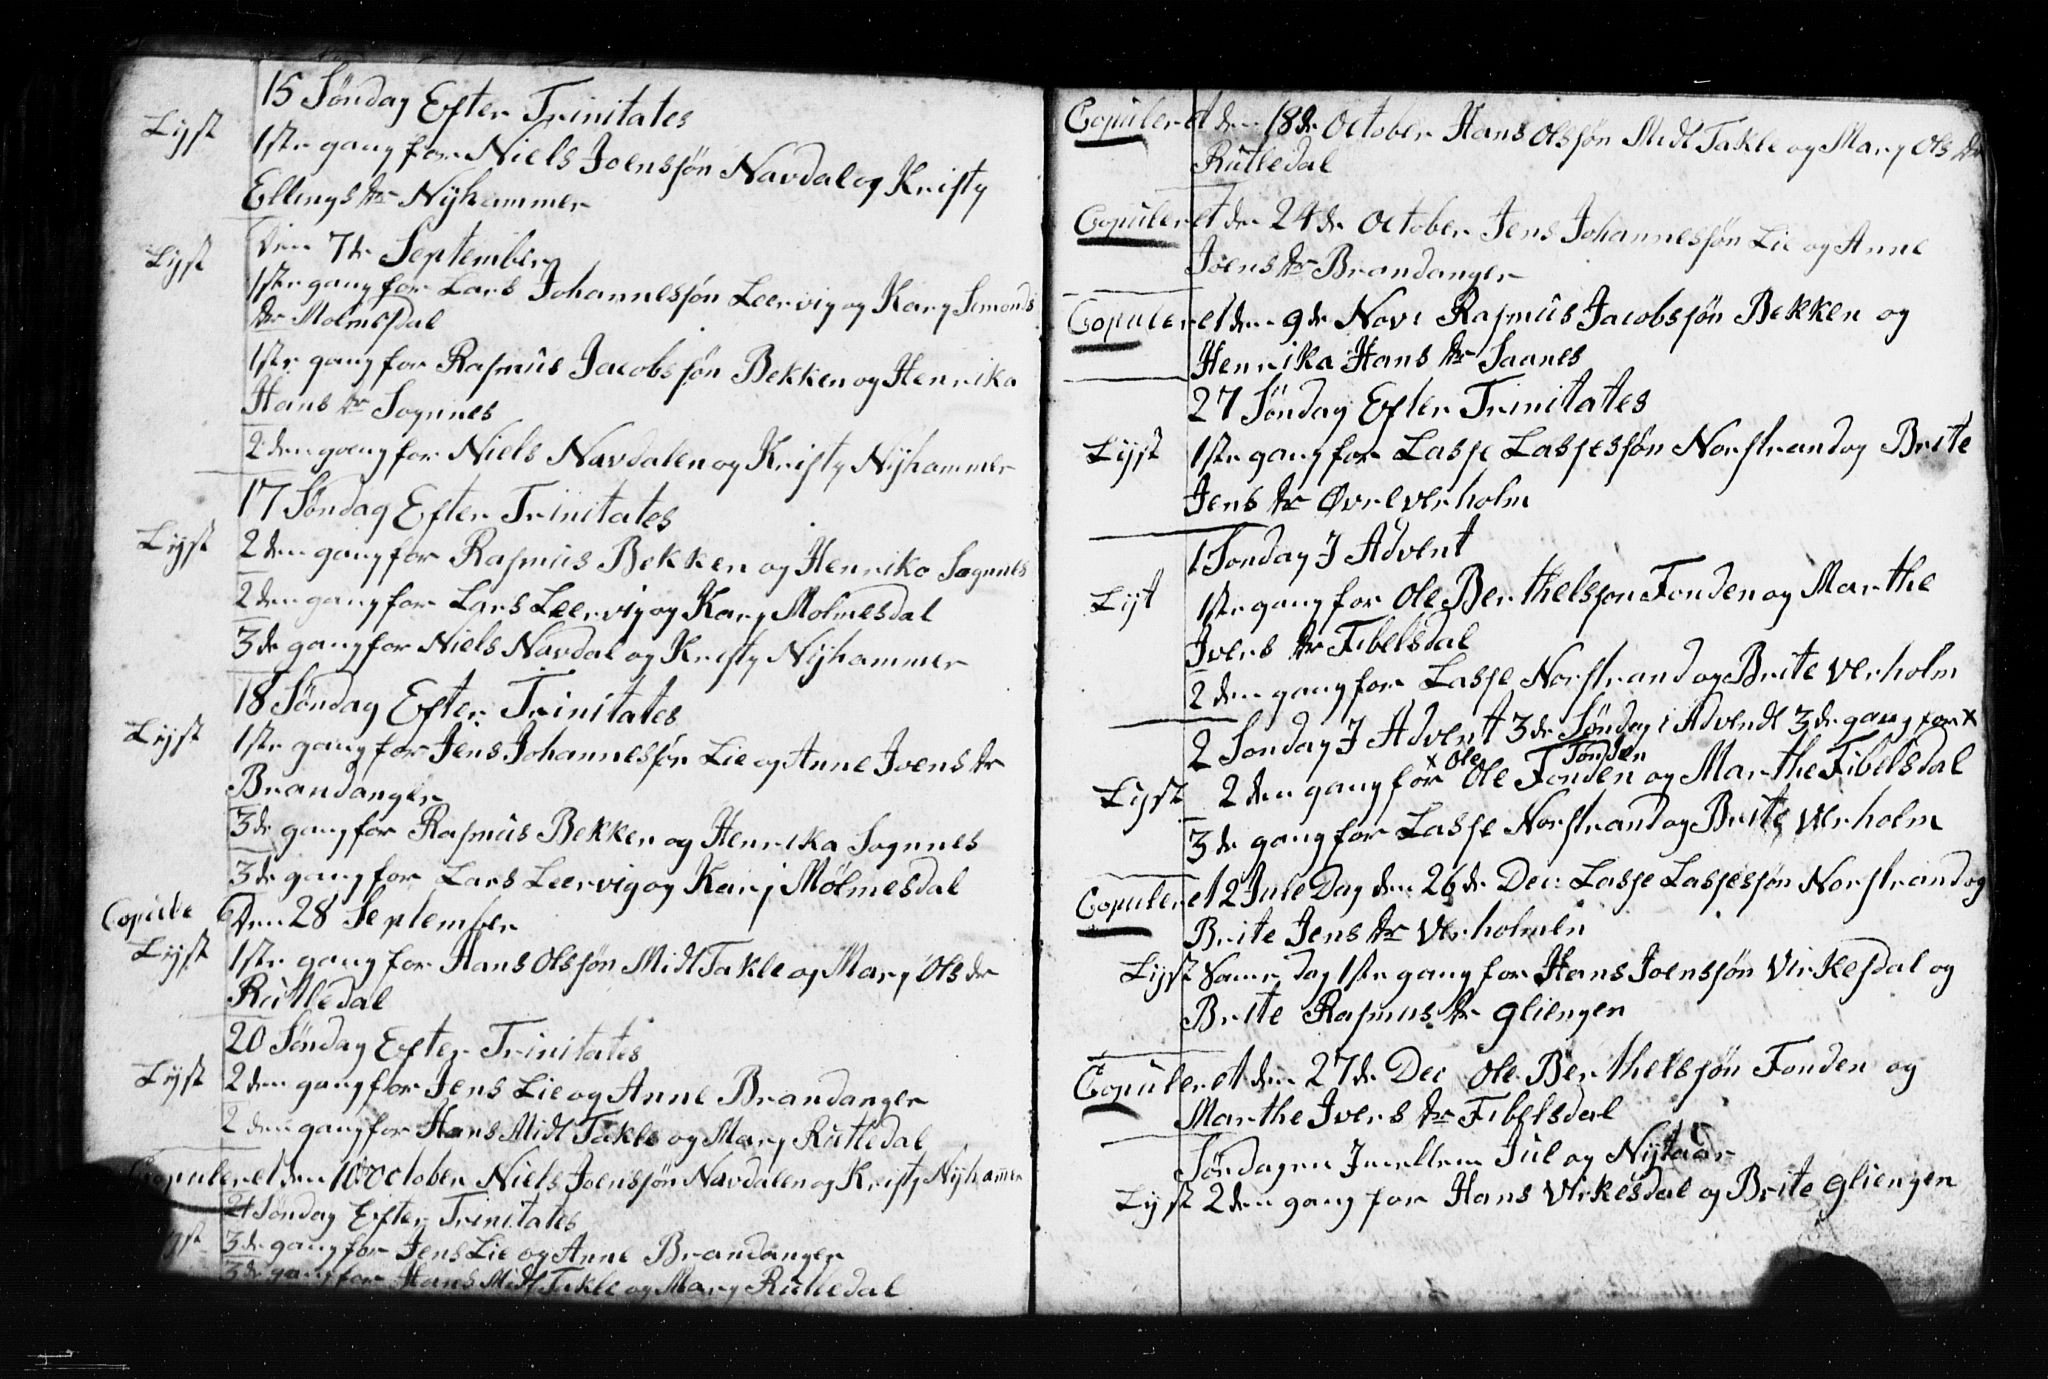 15 Søndag Efter Trinitates
Lyst 1ste gang for Niels Joensøn Navdal og Kristy
Ellings dtr Nyhammer
Den 7de September
Lyst 1ste gang for Lars Johannessøn Leervig og Kary Simonds
dtr Molmesdal
1ste gang for Rasmus Jacobssøn Bekken og Henrika
Hans dtr Sognnes
2den gang for Niels Navdalen og Kristy Nyhammer
17 Søndag Efter Trinitates
Lyst 2den gang for Rasmus Bekken og Henrika Sognnes
2den gang for Lars Leervig og Kary Molmesdal
3de gang for Niels Navdal og Kristy Nyhammer
18 Søndag Efter Trinitates
Lyst 1ste gang for Jens Johannessøn Lie og Anne Joens dtr
Brandanger
3de gang for Rasmus Bekken og Henrika Sognnes
3de gang for Lars Leervig og Kary Mølmesdal
Den 28 September
Lyst 1ste gang for Hans Olssøn Midt Takle og Mary Ols dtr
Rutledal
20 Søndag Efter Trinitates
Lyst 2den gang for Jens Lie og Anne Brandanger
2den gang for Hans Midt Takle og Mary Rutledal
Copuleret den 10 October Niels Joenssøn Navdalen og Kristy Nyhamer
21 Søndag Efter Trinitates
3de gang for Jens Lie og Anne Brandanger
3de gang for Hans Midt Takle og Mary Rutledal
Copuleret den 18de October Hans Olssøn Midt Takle og Mary Ols dtr
Rutledal
Copuleret den 24de October Jens Johannessøn Lie og Anne
Joens dtr Brandanger
Copuleret den 9de Nov: Rasmus Jacobssøn Bekken og
Henrika Hans dtr Saanes
27 Søndag Efter Trinitates
Lyst 1ste gang for Lasse Lassessøn Norstrand og Brite
Jens dtr Øvreverholm
1 Søndag J Advent
Lyt 1ste gang for Ole Berthelsson Fonden og Marthe
Jvers dtr Fibelsdal
2den gang for Lasse Norstrand og Brite Verholm
2 Søndag J Advent 3de Søndag i Advendt 3de gang for x
x Ole Fonden
Lyst 2den gang for Ole Fonden og Marthe Fibelsdal
3de gang for Lasse Norstrand og Brite Verholm
Copuleret 2 Jule Dag den 26de Dec: Lasse Lassessøn Norstrand og
Brite Jens dtr Verholmen
Lyst Same dag 1ste gang for Hans Joenssøn Virkesdal og
Brite Rasmus dtr Gliengen
Copuleret den 27de Dec Ole Berthelssøn Fonden og
Marthe Jvers dtr Fibelsdal
Søndagen Jmellem Jul og Nytaar
Lyst 2den gang for Hans Virkesdal og Brite Gliengen